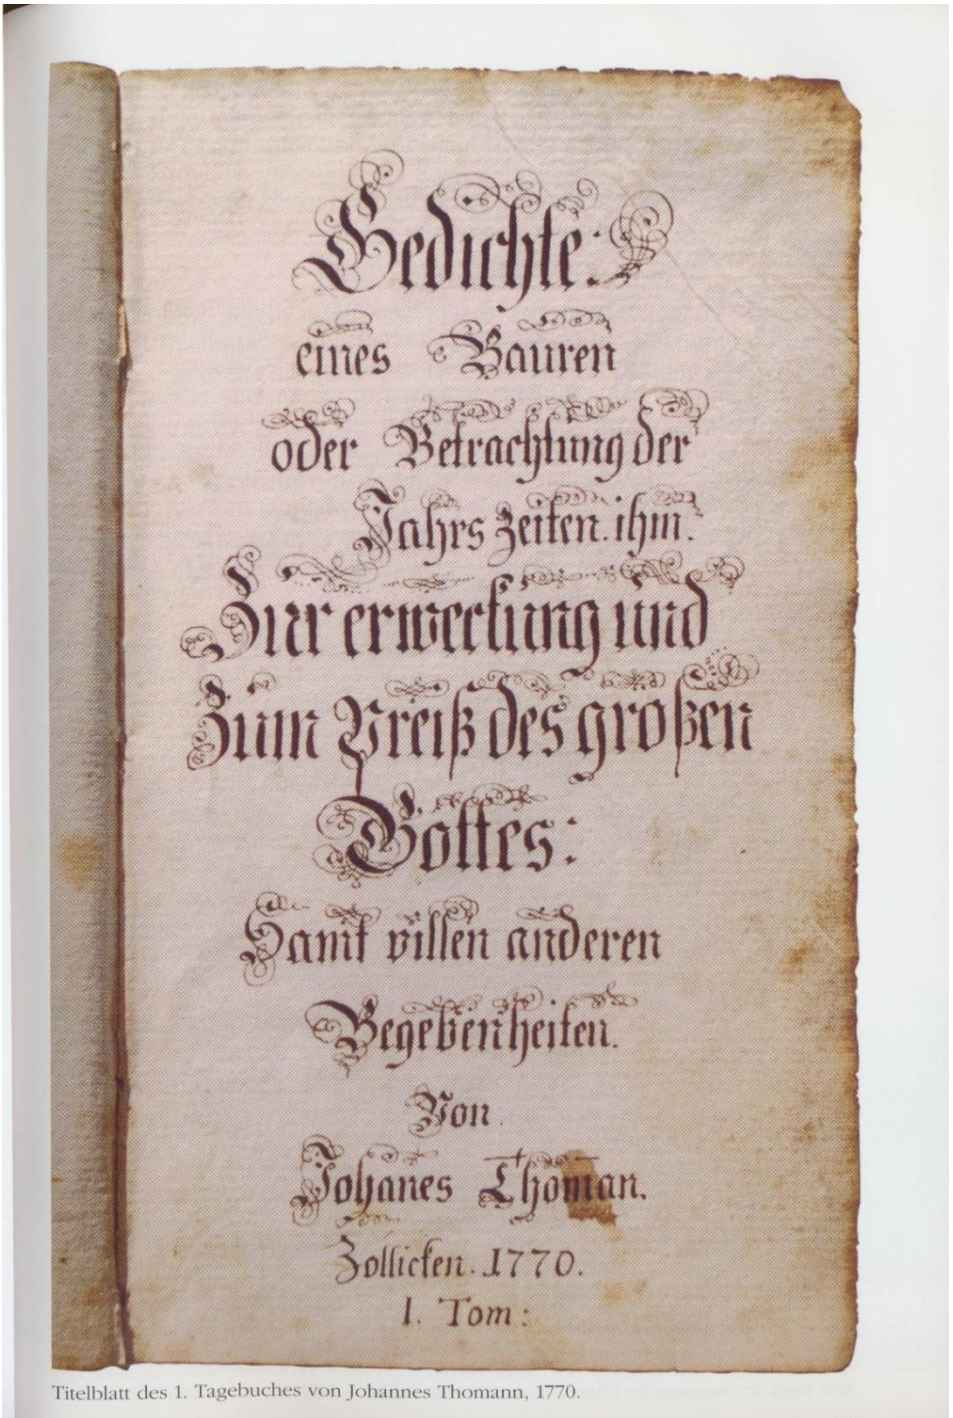 Gedichte:
eines Bauren
oder Betrachtung der
Jahrs zeiten. ihm.
Zur erweckung und
Zum Preiß des großen
Gottes:
Samt villen anderen
Begebenheiten.
Von
Johanes Thoman.
Zollicken. 1770.
I. Tom:
Titelblatt des 1. Tagebuches von Johannes Thomann, 1770.